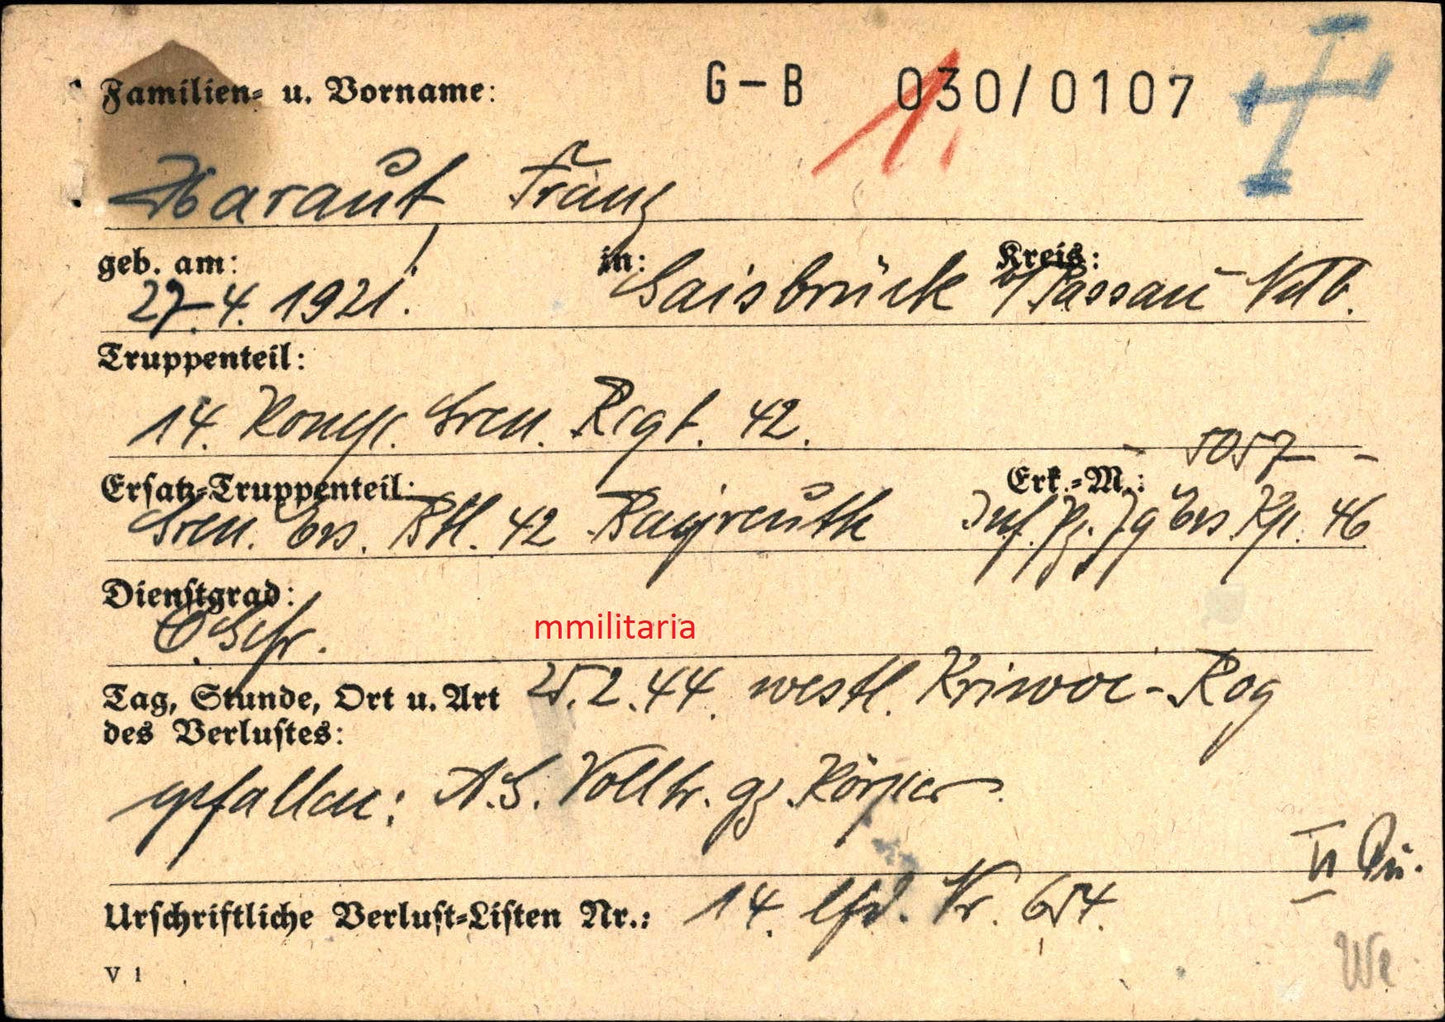 Familien- u. Vorname: G-B 030/0107
1.
Haraut Franz
geb. am: in: Kreis:
27.4.1921. Gaisbrück b/Passau Ndb.
Truppenteil:
14. Komp. Gren. Regt. 42.
- 5057 -
Ersatz-Truppenteil: Erk.-M.:
Gren. Ers. Btl. 42 Bayreuth Inf. Pz. Jg Ers Kp. 46
Dienstgrad:
O.Gefr.
mmilitaria
Tag, Stunde, Ort u. Art 25.2.44. westl. Kriwoi-Rog
des Verlustes:
gefallen: A.G. Volltr. gz. Körper.
II
Urschriftliche Verlust-Listen Nr.: 14. lfd. Nr. 654.
V 1
We